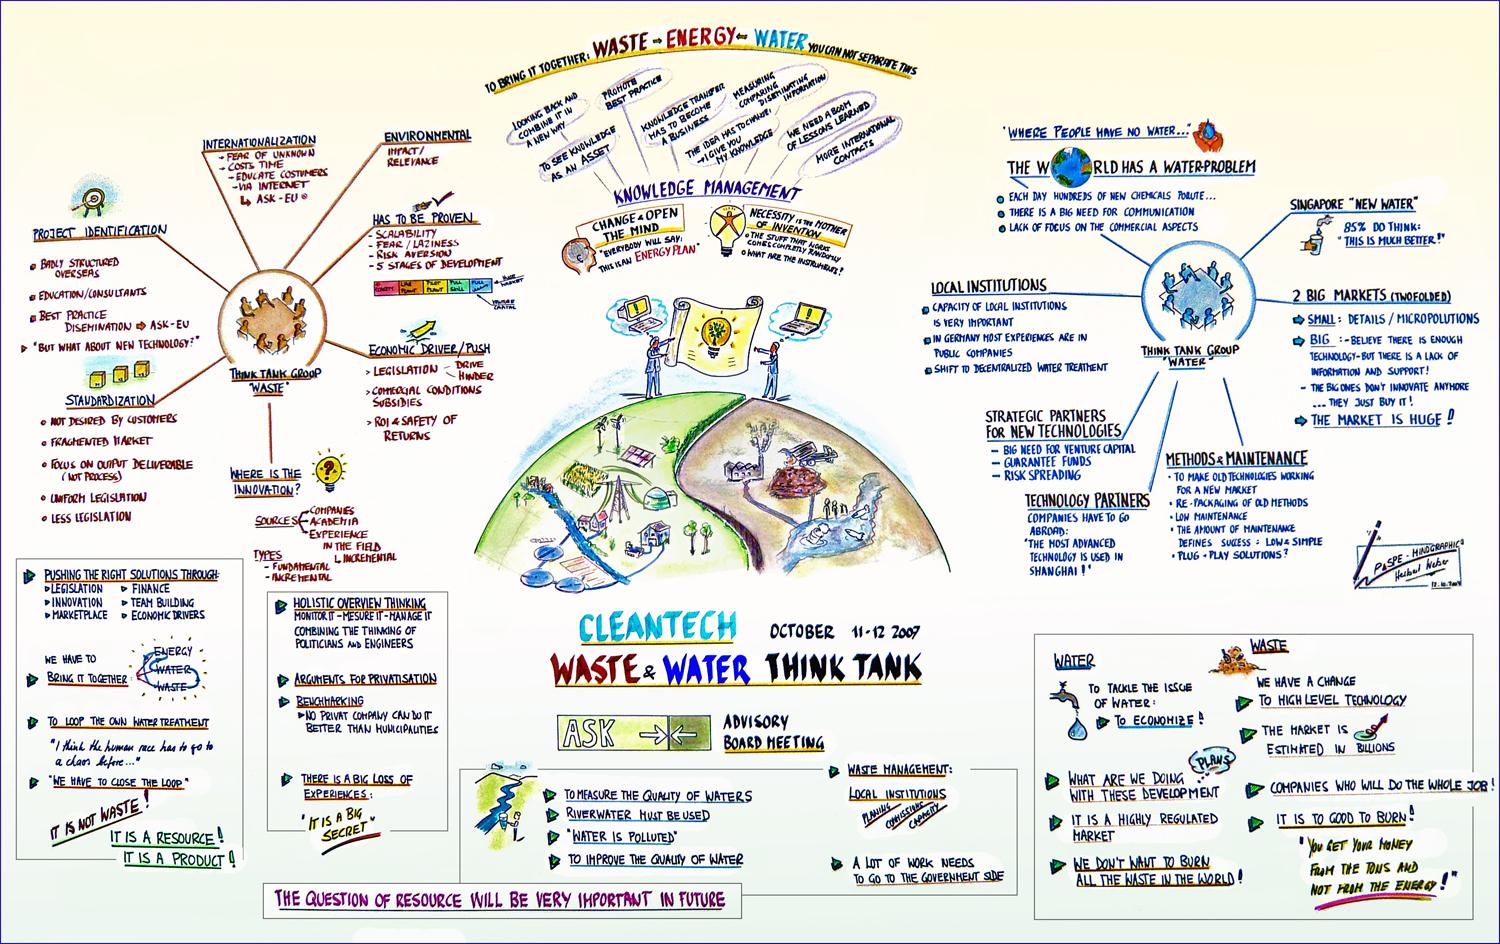 TO BRING IT TOGETHER: WASTE - ENERGY - WATER YOU CAN NOT SEPARATE THIS
LOOKING BACK AND
COMBINE IT IN
A NEW WAY
PROMOTE
BEST PRACTICE
TO SEE KNOWLEDGE
AS AN ASSET
KNOWLEDGE TRANSFER
HAS TO BECOME
A BUSINESS
MEASURING
COMPARING
DISEMINATING
INFORMATION
THE IDEA HAS TO CHANGE:
I GIVE YOU
MY KNOWLEDGE
WE NEED A BOOM
OF LESSONS LEARNED
MORE INTERNATIONAL
CONTACTS
KNOWLEDGE MANAGEMENT
CHANGE & OPEN
THE MIND
"EVERYBODY WILL SAY:
THIS IS AN ENERGYPLAN"
NECESSITY IS THE MOTHER
OF INVENTION
THE STUFF THAT WORKS
COMES COMPLETELY RANDOMLY
WHAT ARE THE INSTRUMENTS?
INTERNATIONALIZATION
- FEAR OF UNKNOWN
- COSTS TIME
- EDUCATE COSTUMERS
- VIA INTERNET
ASK - EU
ENVIRONMENTAL
IMPACT/
RELEVANCE
PROJECT IDENTIFICATION
BADLY STRUCTURED
OVERSEAS
EDUCATION/CONSULTANTS
BEST PRACTICE
DISEMINATION ⇨ ASK-EU
"BUT WHAT ABOUT NEW TECHNOLOGY?"
HAS TO BE PROVEN
- SCALABILITY
- FEAR / LAZINESS
- RISK AVERSION
- 5 STAGES OF DEVELOPMENT
PILOT
PLANT
FULL
VENTURE
CAPITAL
THINK TANK GROUP
"WASTE"
ECONOMIC DRIVER/PUSH
> LEGISLATION
DRIVE
HINDER
> COMERCIAL CONDITIONS
SUBSIDIES
> ROI & SAFETY OF
RETURNS
STANDARDIZATION
NOT DESIRED BY CUSTOMERS
FRAGMENTED MARKET
FOCUS ON OUTPUT DELIVERABLE
(NOT PROCESS)
UNIFORM LEGISLATION
LESS LEGISLATION
WHERE IS THE
INNOVATION?
SOURCES
COMPANIES
ACADEMIA
EXPERIENCE
IN THE FIELD
INCREMENTAL
TYPES
- FUNDAMENTAL
- INCREMENTAL
"WHERE PEOPLE HAVE NO WATER..."
THE W RLD HAS A WATER-PROBLEM
EACH DAY HUNDREDS OF NEW CHEMICALS POLUTE...
THERE IS A BIG NEED FOR COMMUNICATION
LACK OF FOCUS ON THE COMMERCIAL ASPECTS
SINGAPORE "NEW WATER"
85% DO THINK:
"THIS IS MUCH BETTER!"
LOCAL INSTITUTIONS
CAPACITY OF LOCAL INSTITUTIONS
IS VERY IMPORTANT
IN GERMANY MOST EXPERIENCES ARE IN
PUBLIC COMPANIES
SHIFT TO DECENTRALIZED WATER TREATMENT
THINK TANK GROUP
"WATER"
2 BIG MARKETS (TWOFOLDED)
SMALL: DETAILS / MICROPOLUTIONS
BIG: - BELIEVE THERE IS ENOUGH
TECHNOLOGY - BUT THERE IS A LACK OF
INFORMATION AND SUPPORT!
- THE BIG ONES DON'T INNOVATE ANYMORE
... THEY JUST BUY IT!
THE MARKET IS HUGE!!
STRATEGIC PARTNERS
FOR NEW TECHNOLOGIES
- BIG NEED FOR VENTURE CAPITAL
- GUARANTEE FUNDS
- RISK SPREADING
TECHNOLOGY PARTNERS
COMPANIES HAVE TO GO
ABROAD:
"THE MOST ADVANCED
TECHNOLOGY IS USED IN
SHANGHAI!"
METHODS & MAINTENANCE
• TO MAKE OLD TECHNOLOGIES WORKING
FOR A NEW MARKET
• RE-PACKAGING OF OLD METHODS
• LOW MAINTENANCE
• THE AMOUNT OF MAINTENANCE
DEFINES SUCESS: LOW & SIMPLE
• PLUG + PLAY SOLUTIONS?
12.10.2007
PUSHING THE RIGHT SOLUTIONS THROUGH:
LEGISLATION
INNOVATION
MARKETPLACE
FINANCE
TEAM BUILDING
ECONOMIC DRIVERS
WE HAVE TO
BRING IT TOGETHER:
ENERGY
WATER
WASTE
TO LOOP THE OWN WATER TREATMENT
"I think the human race has to go to
a chaos before..."
"WE HAVE TO CLOSE THE LOOP"
IT IS NOT WASTE!
IT IS A RESOURCE!
IT IS A PRODUCT!
HOLISTIC OVERVIEW THINKING
MONITOR IT - MESURE IT - MANAGE IT
COMBINING THE THINKING OF
POLITICIANS AND ENGINEERS
ARGUMENTS FOR PRIVATISATION
BENCHMARKING
NO PRIVAT COMPANY CAN DO IT
BETTER THAN MUNICIPALITIES
THERE IS A BIG LOSS OF
EXPERIENCES:
"IT IS A BIG
SECRET"
CLEANTECH OCTOBER 11-12 2007
WASTE & WATER THINK TANK
ASK
ADVISORY
BOARD MEETING
TO MEASURE THE QUALITY OF WATERS
RIVERWATER MUST BE USED
"WATER IS POLLUTED"
TO IMPROVE THE QUALITY OF WATER
WASTE MANAGEMENT:
LOCAL INSTITUTIONS
PLANING
COMISSIONS
CAPACITY
A LOT OF WORK NEEDS
TO GO TO THE GOVERNMENT SIDE
THE QUESTION OF RESOURCE WILL BE VERY IMPORTANT IN FUTURE
WATER
TO TACKLE THE ISSUE
OF WATER:
TO ECONOMIZE!
PLANS
WHAT ARE WE DOING
WITH THESE DEVELOPMENT
IT IS A HIGHLY REGULATED
MARKET
WE DON'T WANT TO BURN
ALL THE WASTE IN THE WORLD!
WASTE
WE HAVE A CHANGE
TO HIGH LEVEL TECHNOLOGY
THE MARKET IS
ESTIMATED IN BILLIONS
COMPANIES WHO WILL DO THE WHOLE JOB!
IT IS TO GOOD TO BURN!
"YOU GET YOUR MONEY
FROM THE TONS AND
NOT FROM THE ENERGY!"